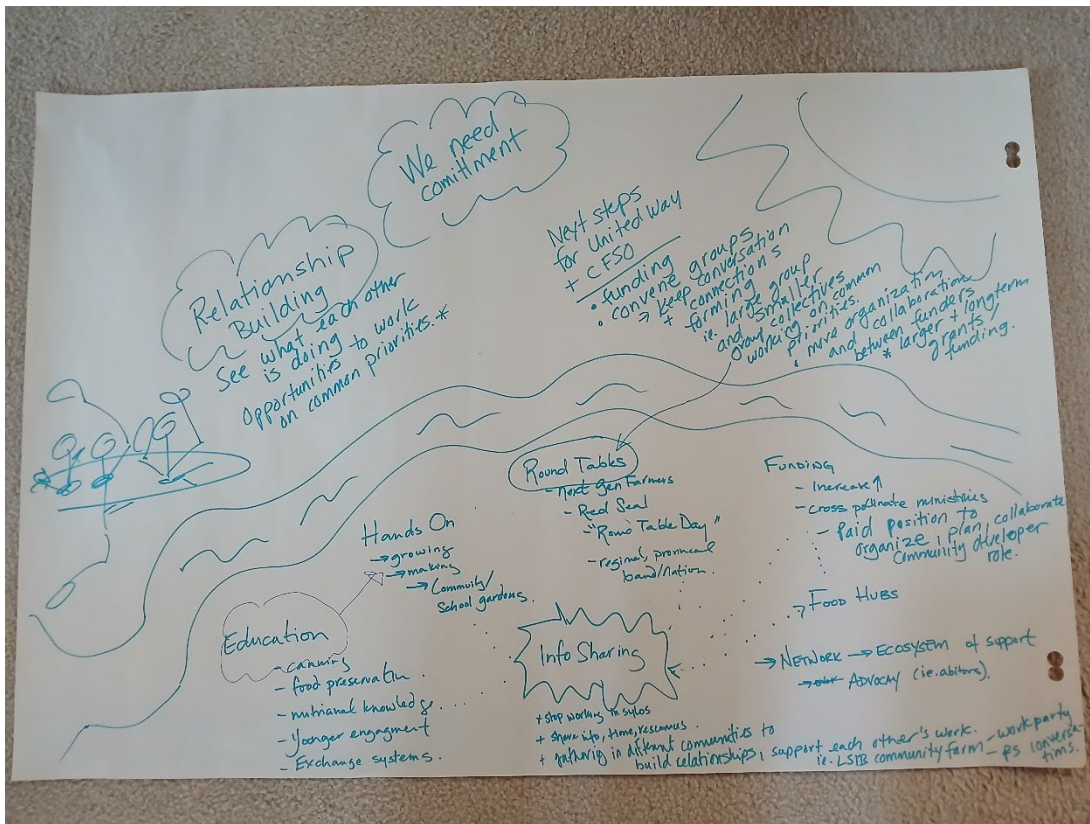 We need
comittment
Relationship
Building
See what each other
is doing
Opportunities to work
on common priorities. *
Next steps
for United Way
+ CFSO
• funding
• convene groups
→ keep conversation
+ connections
forming
ie. large group
and smaller
group collectives
working on common
priorities.
• more organization
and collaboration
between funders
* larger + longterm
grants /
funding.
Round Tables
- Next Gen Farmers
- Red Seal
- "Round Table Day"
- regional, provincial
band/nation.
FUNDING
- Increase ↑
- cross pollinate ministries
- Paid position to
organize, plan, collaborate
community developer
role.
Hands On
→ growing
→ making
→ Community/
School gardens
Education
- canning
- food preservation.
- nutrianal knowledge
- Younger engagment
- Exchange systems.
Info Sharing
+ stop working in sylos
+ share info, time, resources.
+ gathering in different communities to
build relationships, support each other's work.
ie. LSIB community farm - work party
conversa-
tions.
→ FOOD HUBS
→ NETWORK → ECOSYSTEM of support
→ ADVOCACY (ie.